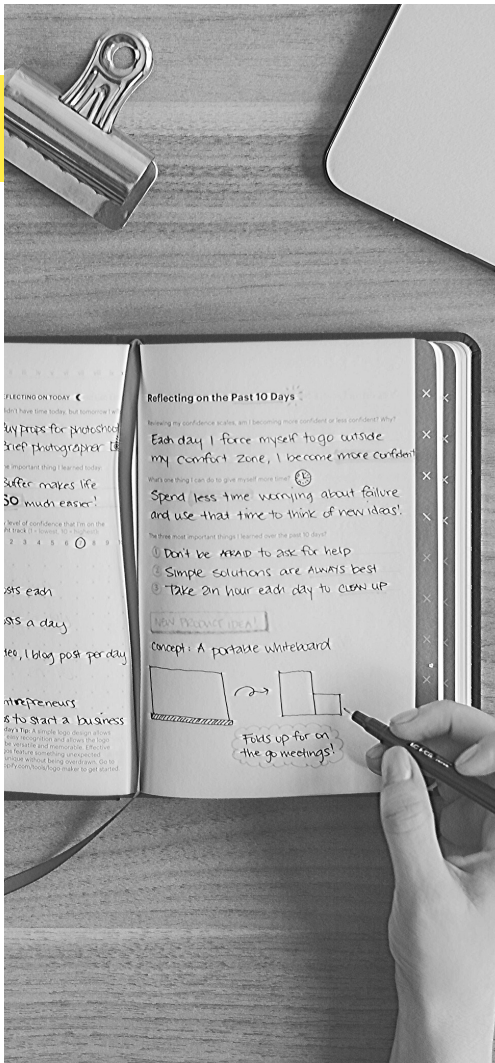 FLECTING ON TODAY
didn't have time today, but tomorrow I will
Buy props for photoshoot
Brief photographer
important thing I learned today
Buffer makes life
SO much easier!
level of confidence that I'm on the
track
2 3 4 5 6 7 8 9
each
a day
, 1 blog post per day
entrepreneurs
to start a business
day's Tip: A simple logo design allows
easy recognition and allows the logo
be versatile and memorable. Effective
feature something unexpected
unique without being overdrawn. Go to
/tools/logo-maker to get started.
Reflecting on the Past 10 Days
Reviewing my confidence scales, am I becoming more confident or less confident? Why?
Each day I force myself to go outside
my comfort zone, I become more confident
What's one thing I can do to give myself more time?
Spend less time worrying about failure
and use that time to think of new ideas!
The three most important things I learned over the past 10 days?
1 Don't be AFRAID to ask for help
2 Simple solutions are ALWAYS best
3 Take an hour each day to CLEAN UP
NEW PRODUCT IDEA!
Concept: A portable whiteboard
Folds up for on
the go meetings!